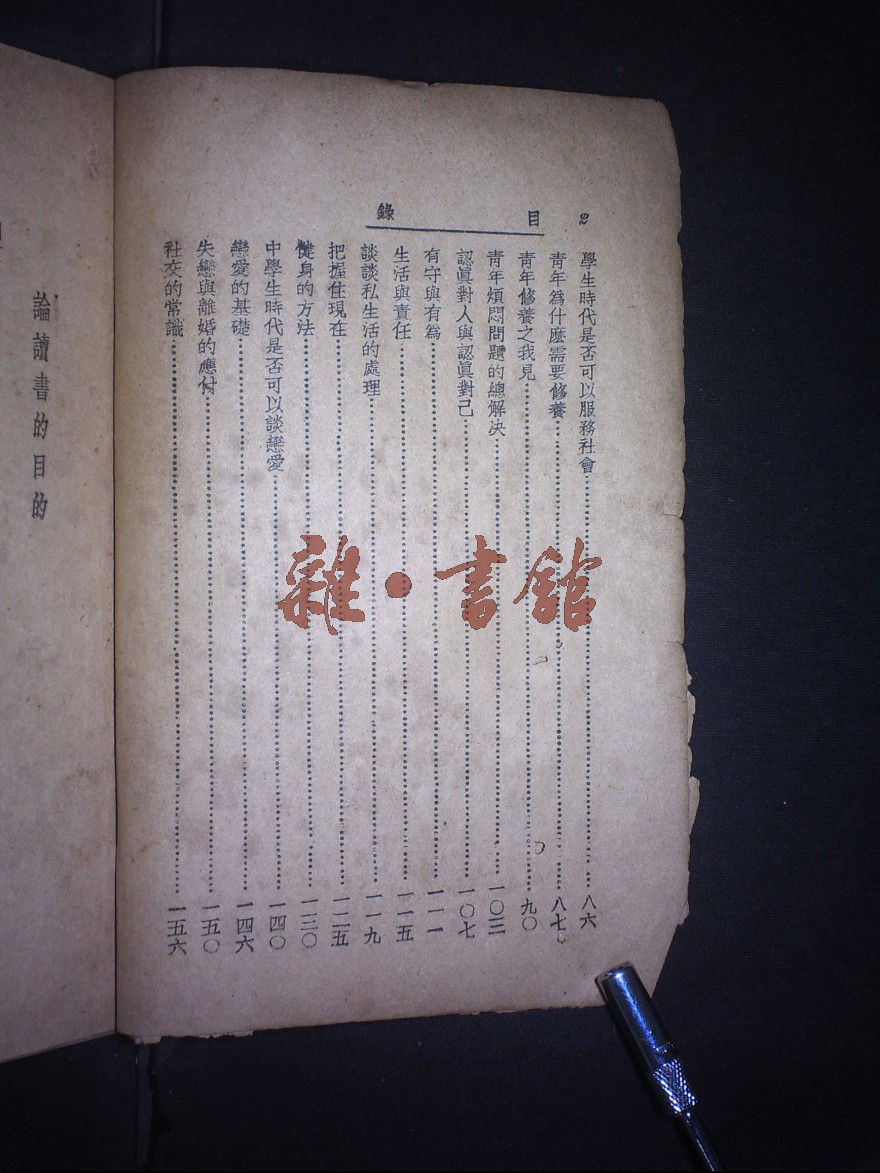 目錄
2
學生時代是否可以服務社會……八六
靑年爲什麽需要修養……八七
靑年修養之我見……九〇
靑年煩悶問題的總解決……一〇三
認眞對人與認眞對己……一〇七
有守與有爲……一一一
生活與責任……一一五
談談私生活的處理……一一九
把握住現在……一二五
健身的方法……一三〇
中學生時代是否可以談戀愛……一四〇
戀愛的基礎……一四六
失戀與離婚的應付……一五〇
社交的常識……一五六
論讀書的目的
雜·書館